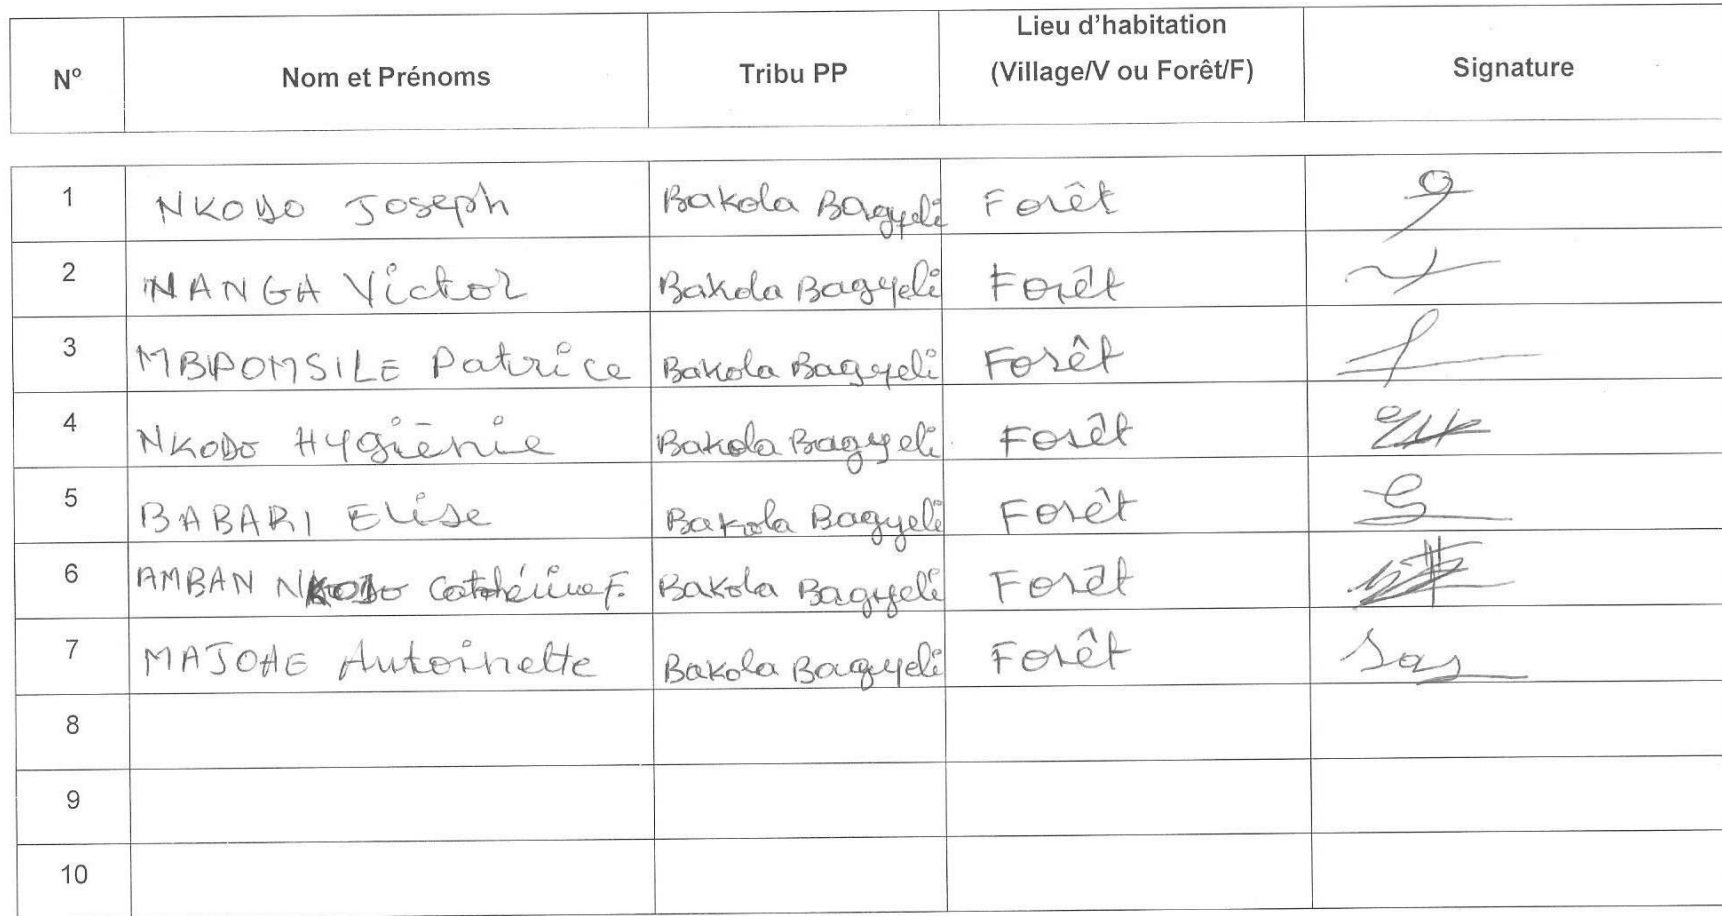 Nº Nom et Prénoms Tribu PP Lieu d'habitation (Village/V ou Forêt/F) Signature
1 NKODO Joseph Bakola Bagyeli Forêt
2 NANGA Victor Bakola Bagyeli Forêt
3 MBPOMSILE Patrice Bakola Bagyeli Forêt
4 NKODO Hygiènie Bakola Bagyeli Forêt
5 BABARI Elise Bakola Bagyeli Forêt
6 AMBAN NKODO Cathérine F. Bakola Bagyeli Forêt
7 MAJOHE Antoinette Bakola Bagyeli Forêt
8
9
10